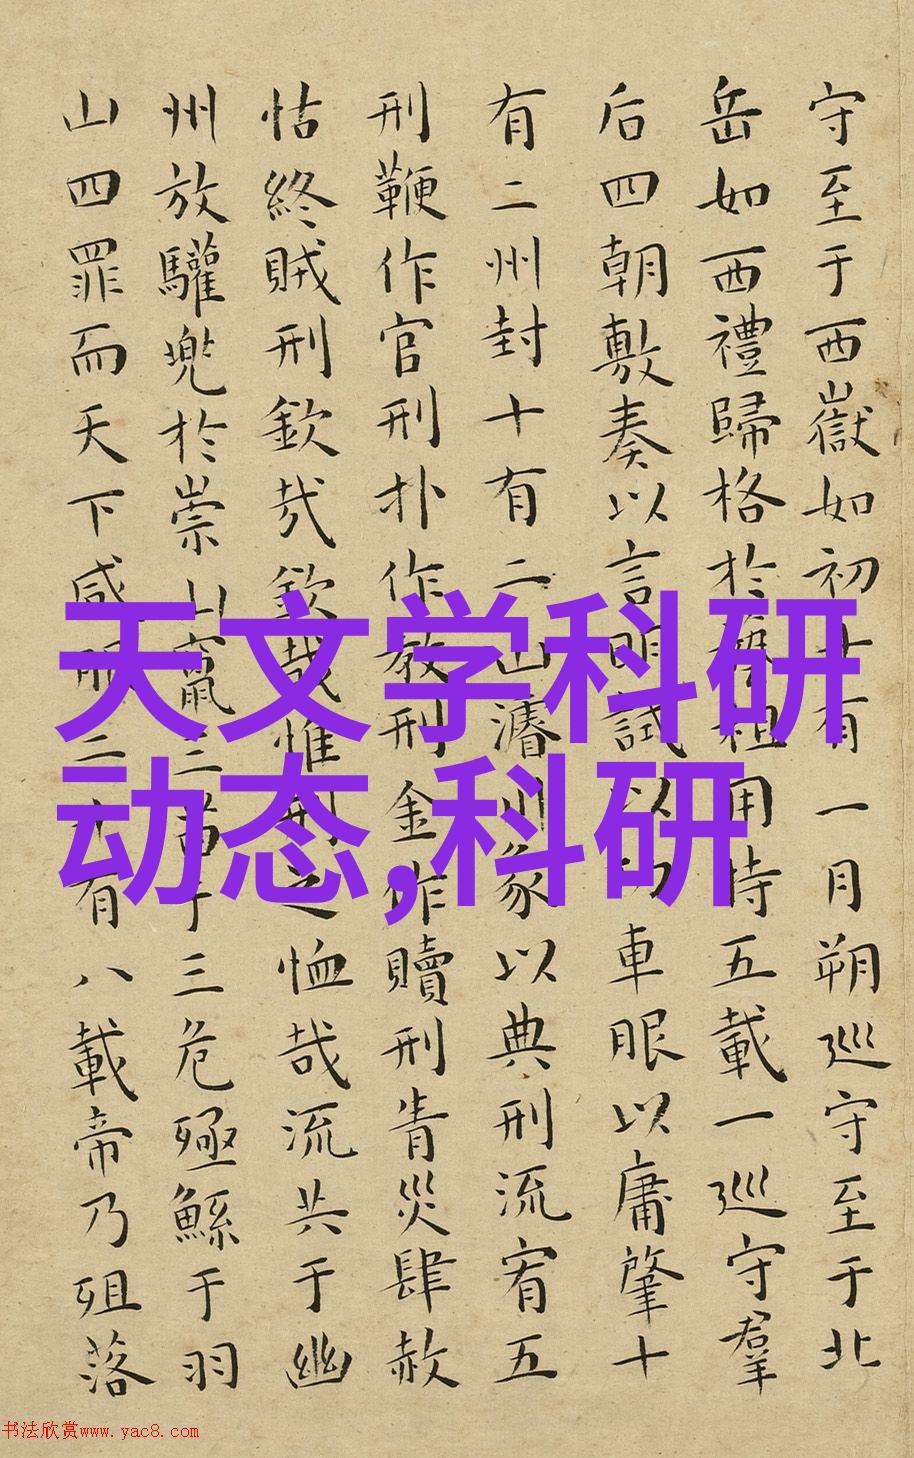 守至于西嶽如初十有一月朔巡守至于北
岳如西禮歸格於藝祖用特五載一巡守羣
后四朝敷奏以言明試以功車眼以庸肇十
有二州封十有二山濬川象以典刑流宥五
刑鞭作官刑扑作教刑金作贖刑眚災肆赦
怙終賊刑欽哉欽哉惟刑之恤哉流共于幽
州放驩兜於崇山竄三苗于三危殛鯀于羽
山四罪而天下咸服二十有八載帝乃殂落
天文学科研
动态,科研
书法欣赏www.yac8.com